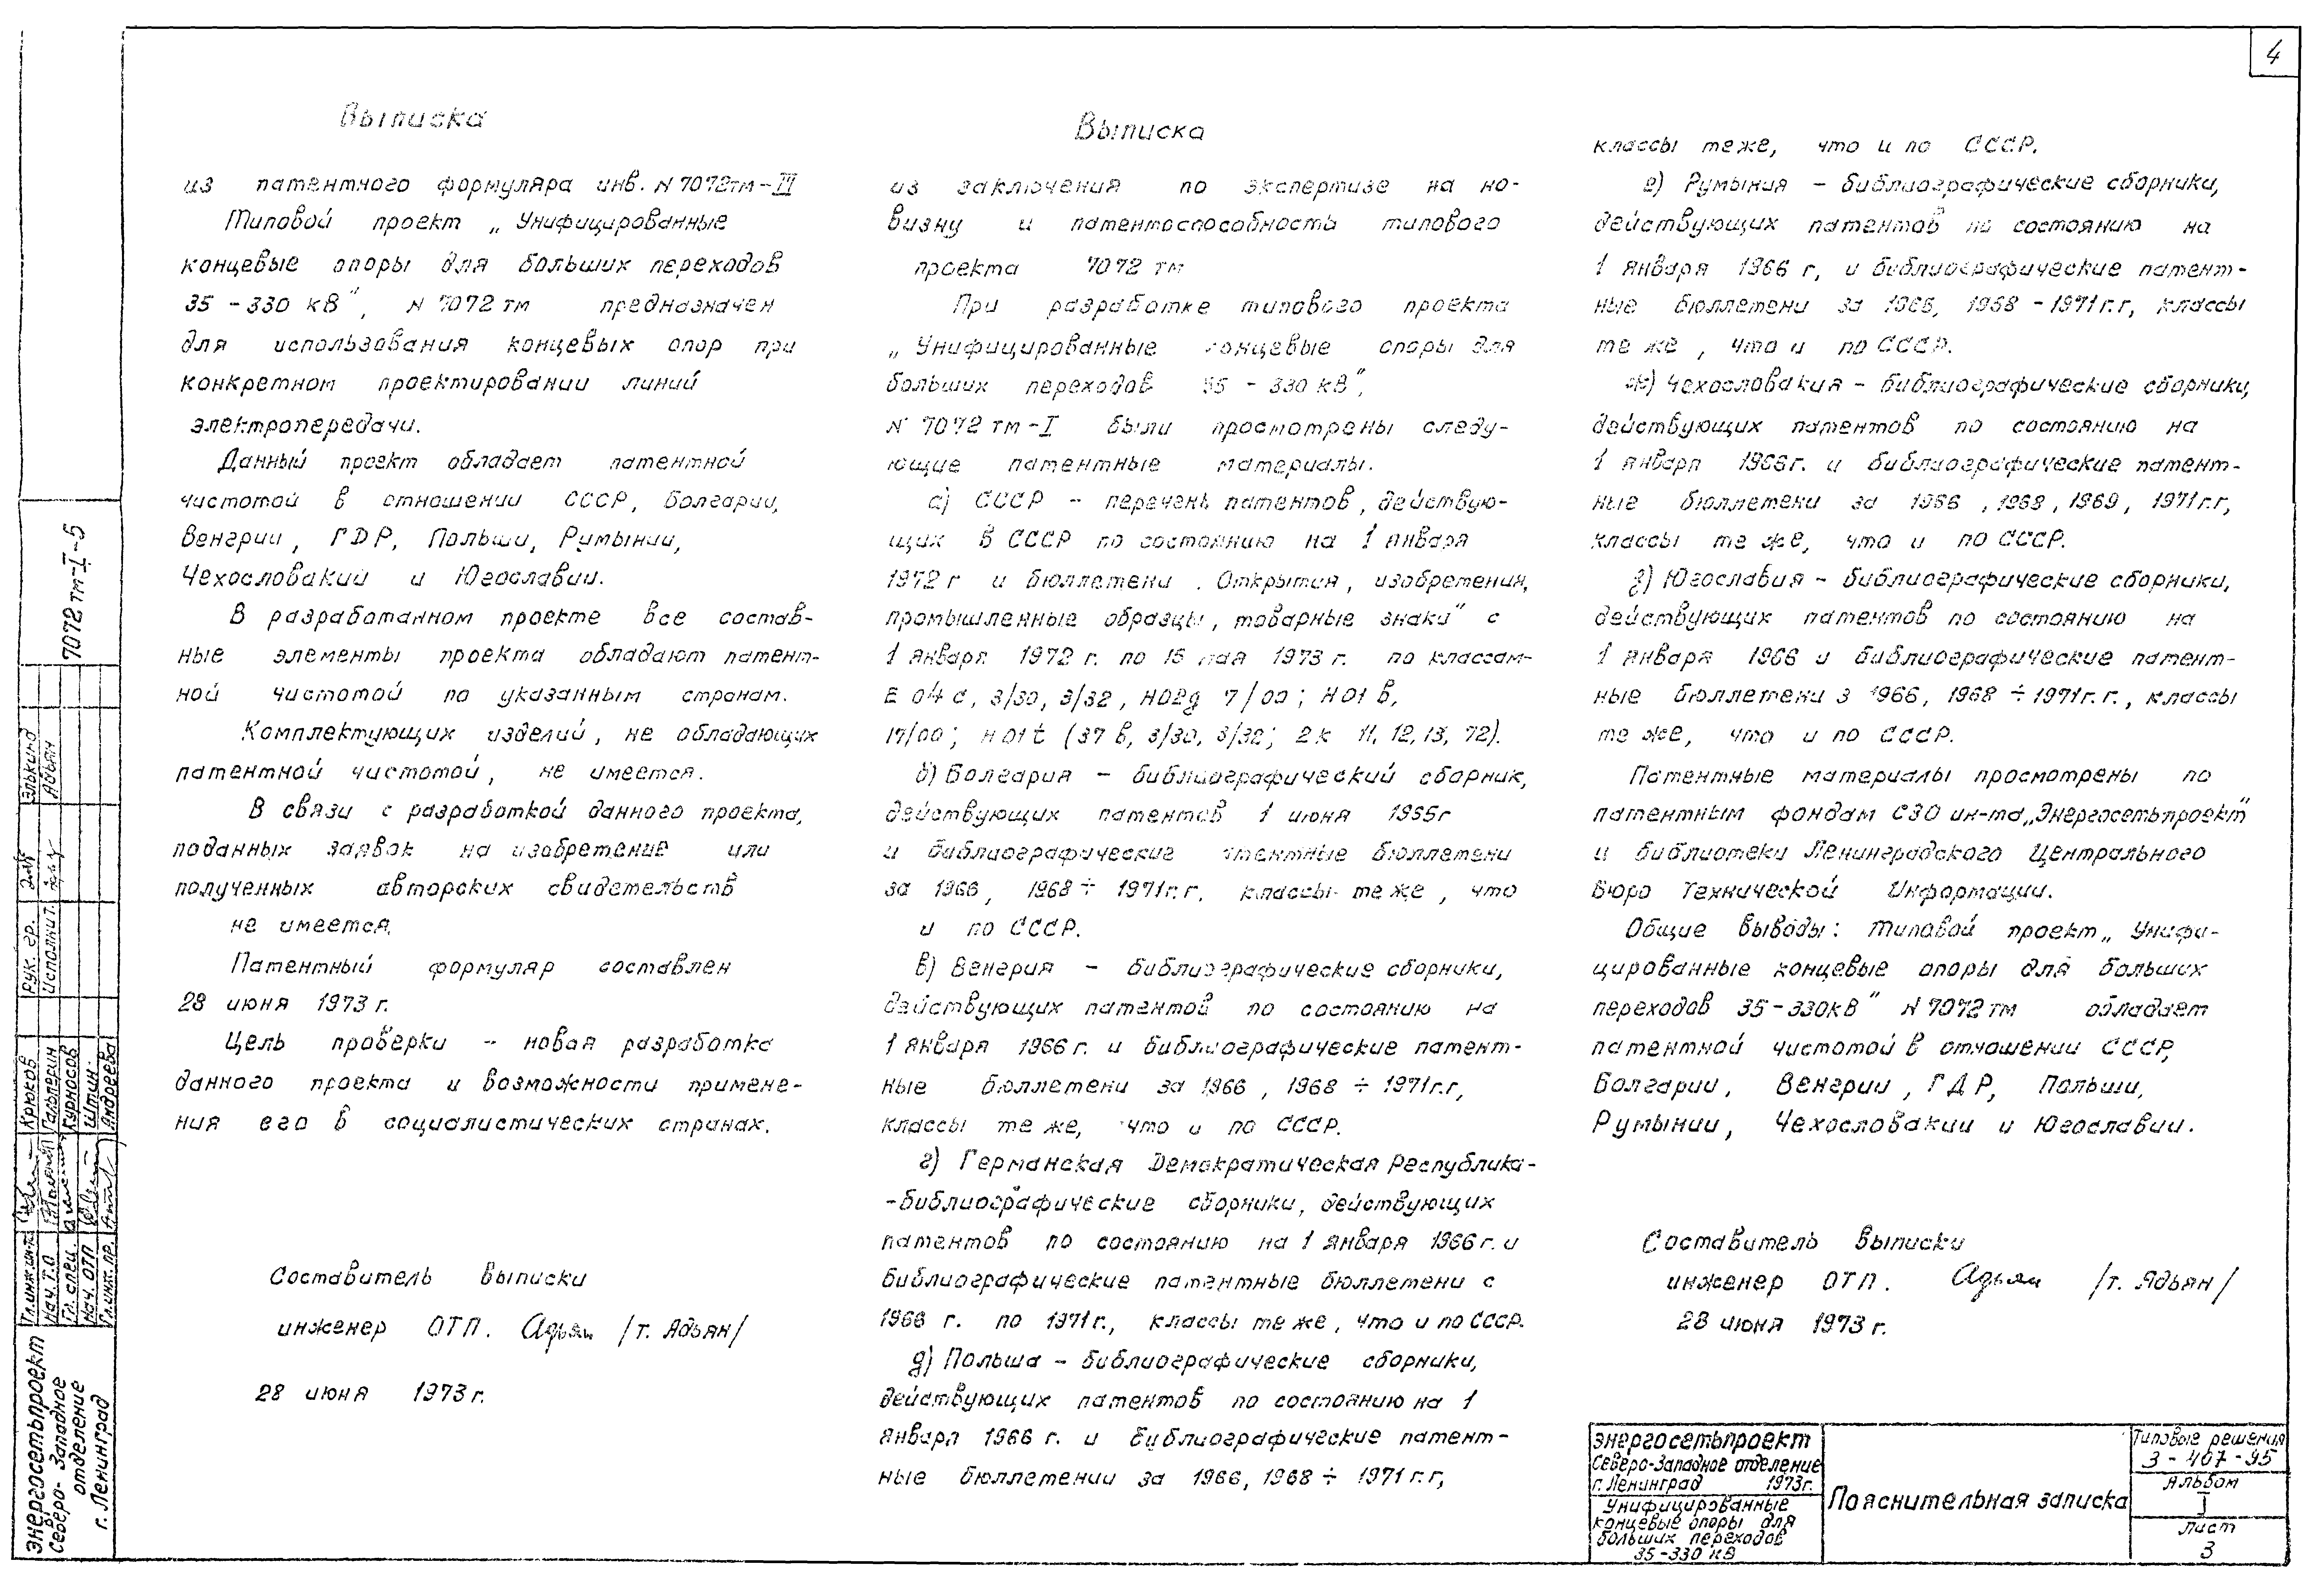 4
Выписка
из патентного формуляра инв. N 7072тм-III
Типовой проект „Унифицированные
концевые опоры для больших переходов
35 - 330 кВ", N 7072 тм предназначен
для использования концевых опор при
конкретном проектировании линий
электропередачи.
Данный проект обладает патентной
чистотой в отношении СССР, Болгарии,
Венгрии, ГДР, Польши, Румынии,
Чехословакии и Югославии.
В разработанном проекте все состав-
ные элементы проекта обладают патент-
ной чистотой по указанным странам.
Комплектующих изделий, не обладающих
патентной чистотой, не имеется.
В связи с разработкой данного проекта,
поданных заявок на изобретение или
полученных авторских свидетельств
не имеется.
Патентный формуляр составлен
28 июня 1973 г.
Цель проверки - новая разработка
данного проекта и возможности примене-
ния его в социалистических странах.
Составитель выписки
инженер ОТП. Адьян /Т. Адьян/
28 июня 1973 г.
Выписка
из заключения по экспертизе на но-
визну и патентоспособность типового
проекта 7072 тм
При разработке типового проекта
„Унифицированные концевые опоры для
больших переходов 35 - 330 кВ",
N 7072 тм-I были просмотрены следу-
ющие патентные материалы.
а) СССР - перечень патентов, действую-
щих в СССР по состоянию на 1 января
1972 г и бюллетени . Открытия, изобретения,
промышленные образцы, товарные знаки" с
1 января 1972 г. по 15 мая 1973 г. по классам-
E 04 c, 3/30, 3/32, H02g 7/00; H01 b,
17/00; H 01 t (37 b, 3/30, 3/32; 2 k 11, 12, 13, 72).
б) Болгария - библиографический сборник,
действующих патентов 1 июня 1965г
и библиографические патентные бюллетени
за 1966, 1968 ÷ 1971г.г. классы те же, что
и по СССР.
в) Венгрия - библиографические сборники,
действующих патентов по состоянию на
1 января 1966 г. и библиографические патент-
ные бюллетени за 1966, 1968 ÷ 1971г.г,
классы те же, что и по СССР.
г) Германская Демократическая Республика-
-библиографические сборники, действующих
патентов по состоянию на 1 января 1966 г. и
библиографические патентные бюллетени с
1966 г. по 1971г., классы те же, что и по СССР.
д) Польша - библиографические сборники,
действующих патентов по состоянию на 1
января 1966 г. и библиографические патент-
ные бюллетении за 1966, 1968 ÷ 1971 г.г,
классы те же, что и по СССР.
е) Румыния - библиографические сборники,
действующих патентов по состоянию на
1 января 1966 г, и библиографические патент-
ные бюллетени за 1966, 1968 - 1971 г.г, классы
те же, что и по СССР.
ж) Чехословакия - библиографические сборники,
действующих патентов по состоянию на
1 января 1966г. и библиографические патент-
ные бюллетени за 1966, 1968, 1969, 1971г.г,
классы те же, что и по СССР.
з) Югославия - библиографические сборники,
действующих патентов по состоянию на
1 января 1966 и библиографические патент-
ные бюллетени з 1966, 1968 ÷ 1971г.г., классы
те же, что и по СССР.
Патентные материалы просмотрены по
патентным фондам СЗО ин-та „Энергосетьпроект"
и библиотеки Ленинградского Центрального
Бюро Технической Информации.
Общие выводы: типовой проект „Унифи-
цированные концевые опоры для больших
переходов 35-330кВ" N 7072 тм обладает
патентной чистотой в отношении СССР,
Болгарии, Венгрии, ГДР, Польши,
Румынии, Чехословакии и Югославии.
Составитель выписки
инженер ОТП. Адьян /Т. Адьян/
28 июня 1973 г.
Энергосетьпроект
Северо-Западное отделение
г. Ленинград 1973г.
Унифицированные
концевые опоры для
больших переходов
35-330 кВ
Пояснительная записка
Типовые решения
3 - 407 - 95
Альбом
I
Лист
3
7072 тм-I-5
Рук. гр. Элькинд
Исполнит. Адьян
Гл. инж. ин-та Крюков
Нач. Т.О Гальперин
Гл. спец. Курносов
Нач. ОТП Штин
Гл. инж. пр. Андреева
Энергосетьпроект
Северо-Западное
отделение
г. Ленинград